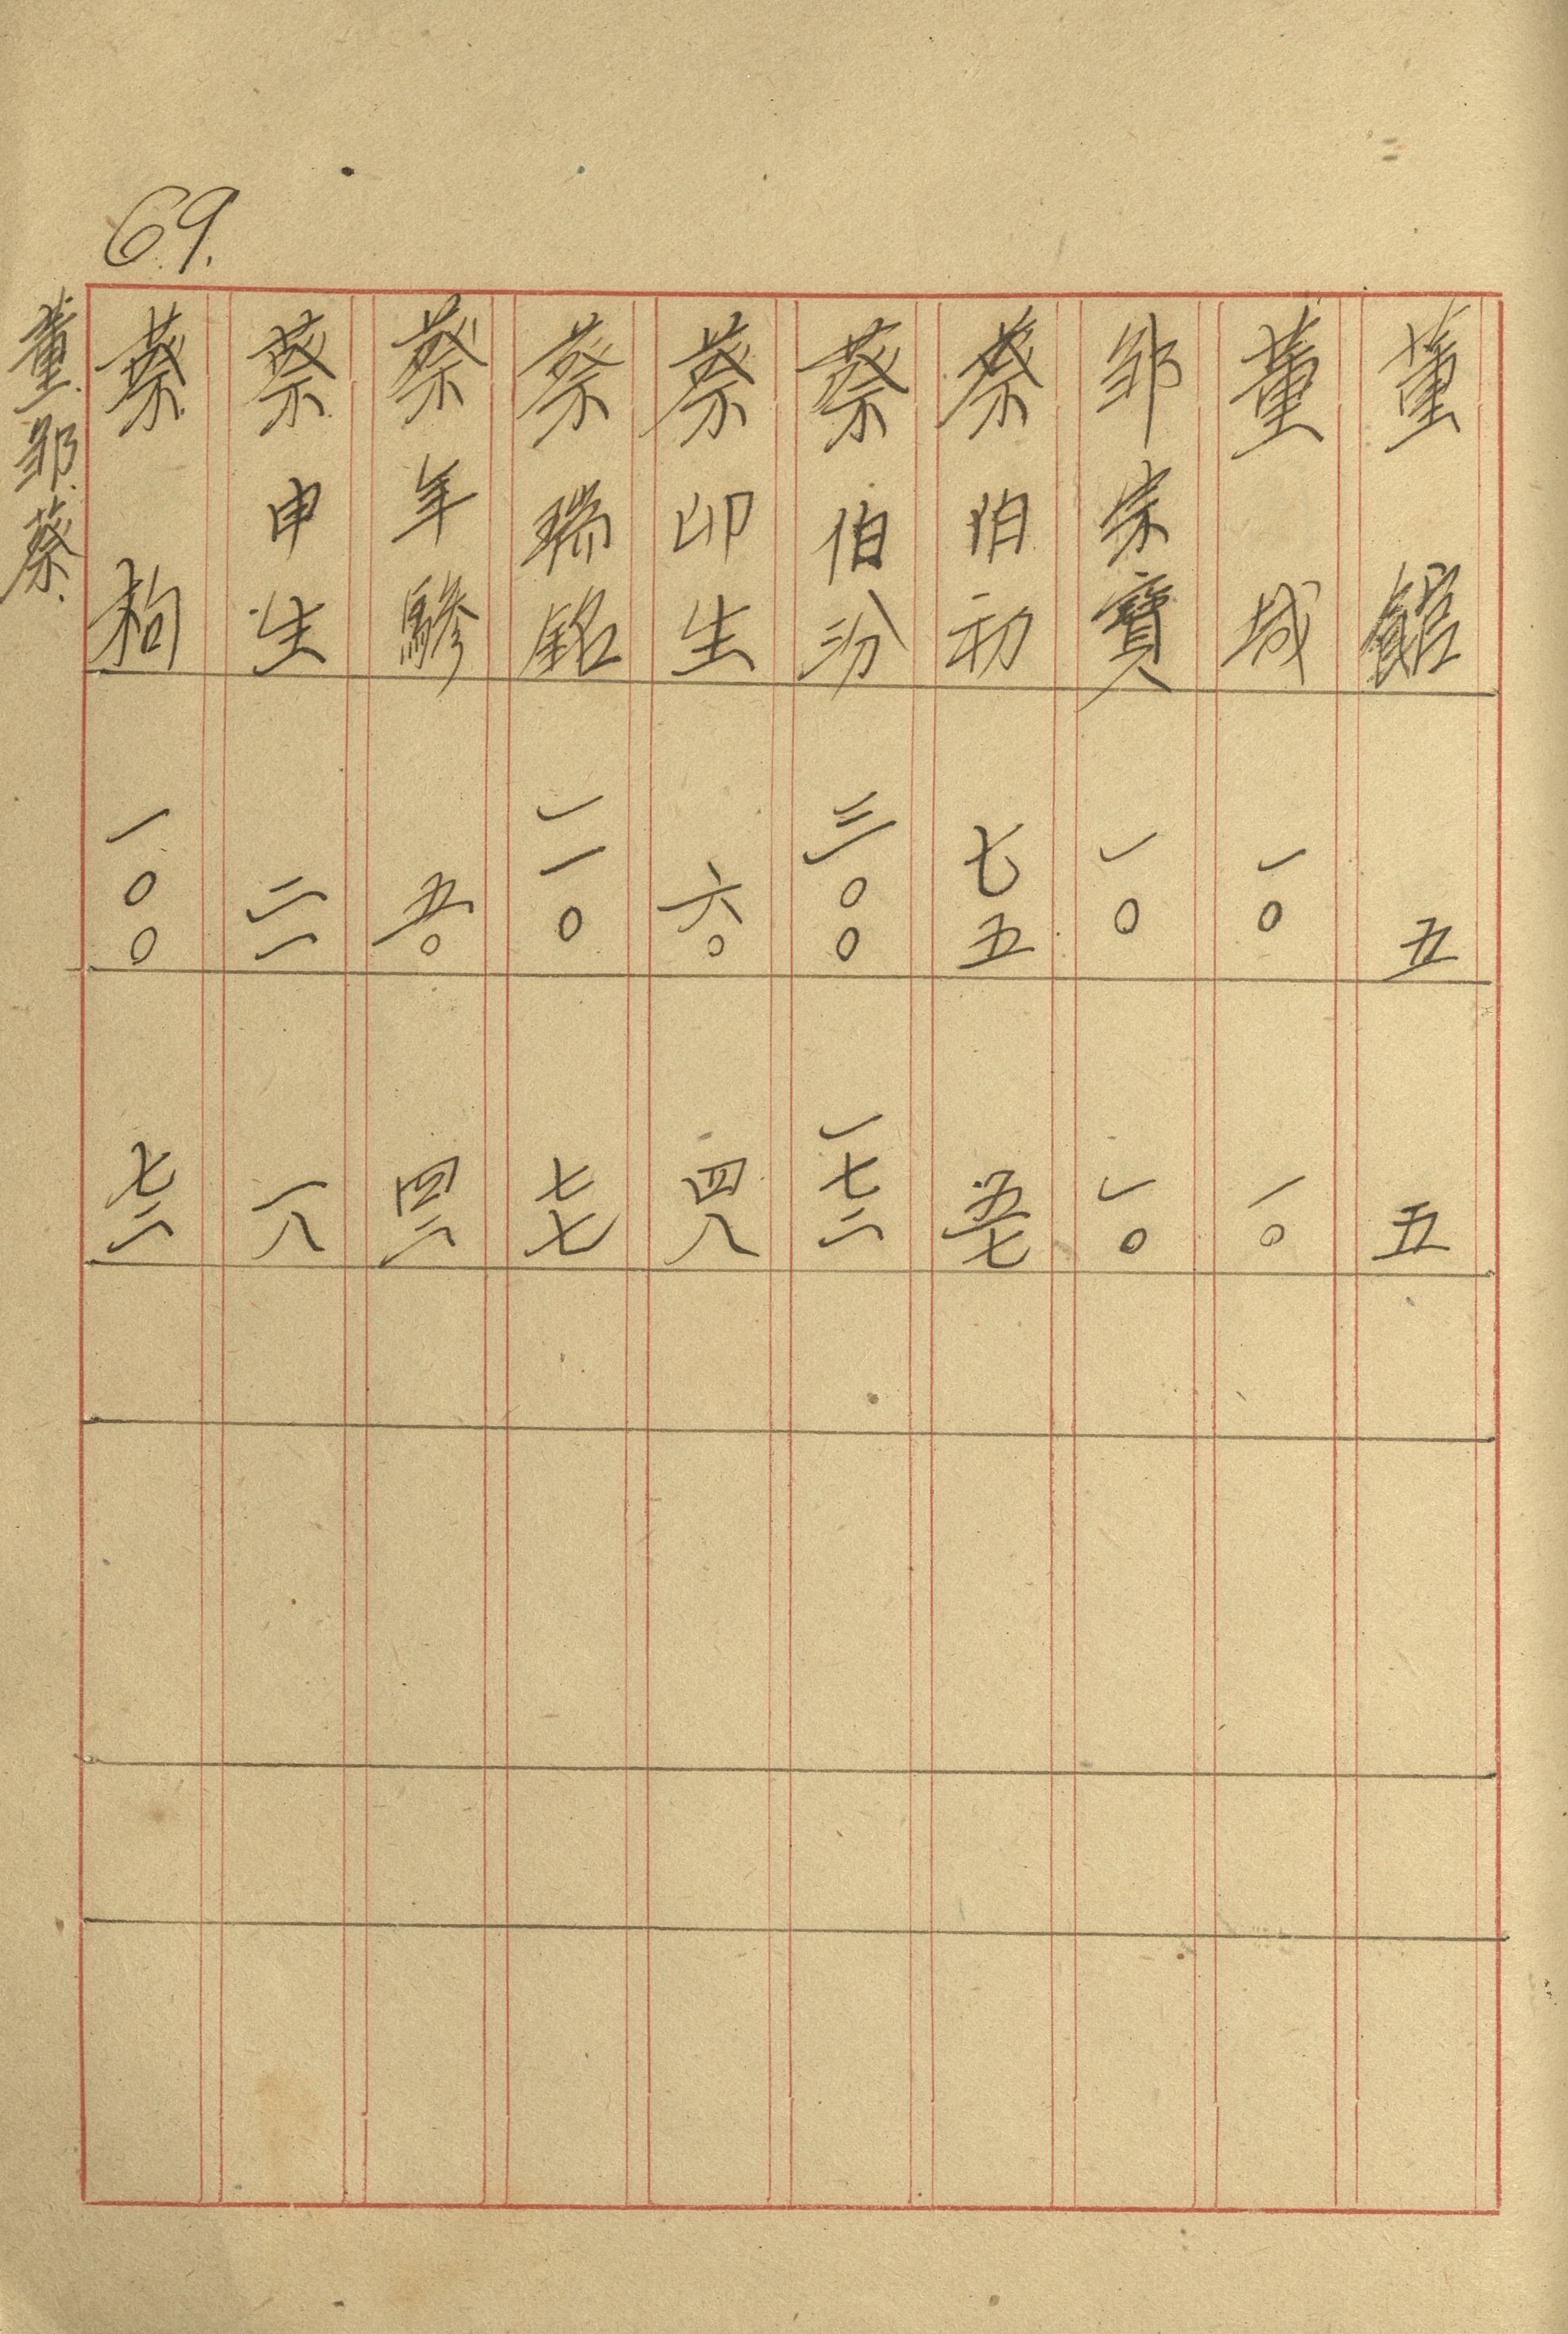 69.
董館 五 五
董城 一〇 一〇
邹宗寶 一〇 一〇
蔡伯初 七五 五七
蔡伯汾 三〇〇 一七二
蔡卯生 六〇 四八
蔡瑞銘 一一〇 七七
蔡年驂 五〇 四二
蔡申生 二一 一八
蔡枸 一〇〇 七二
董.邹.蔡.